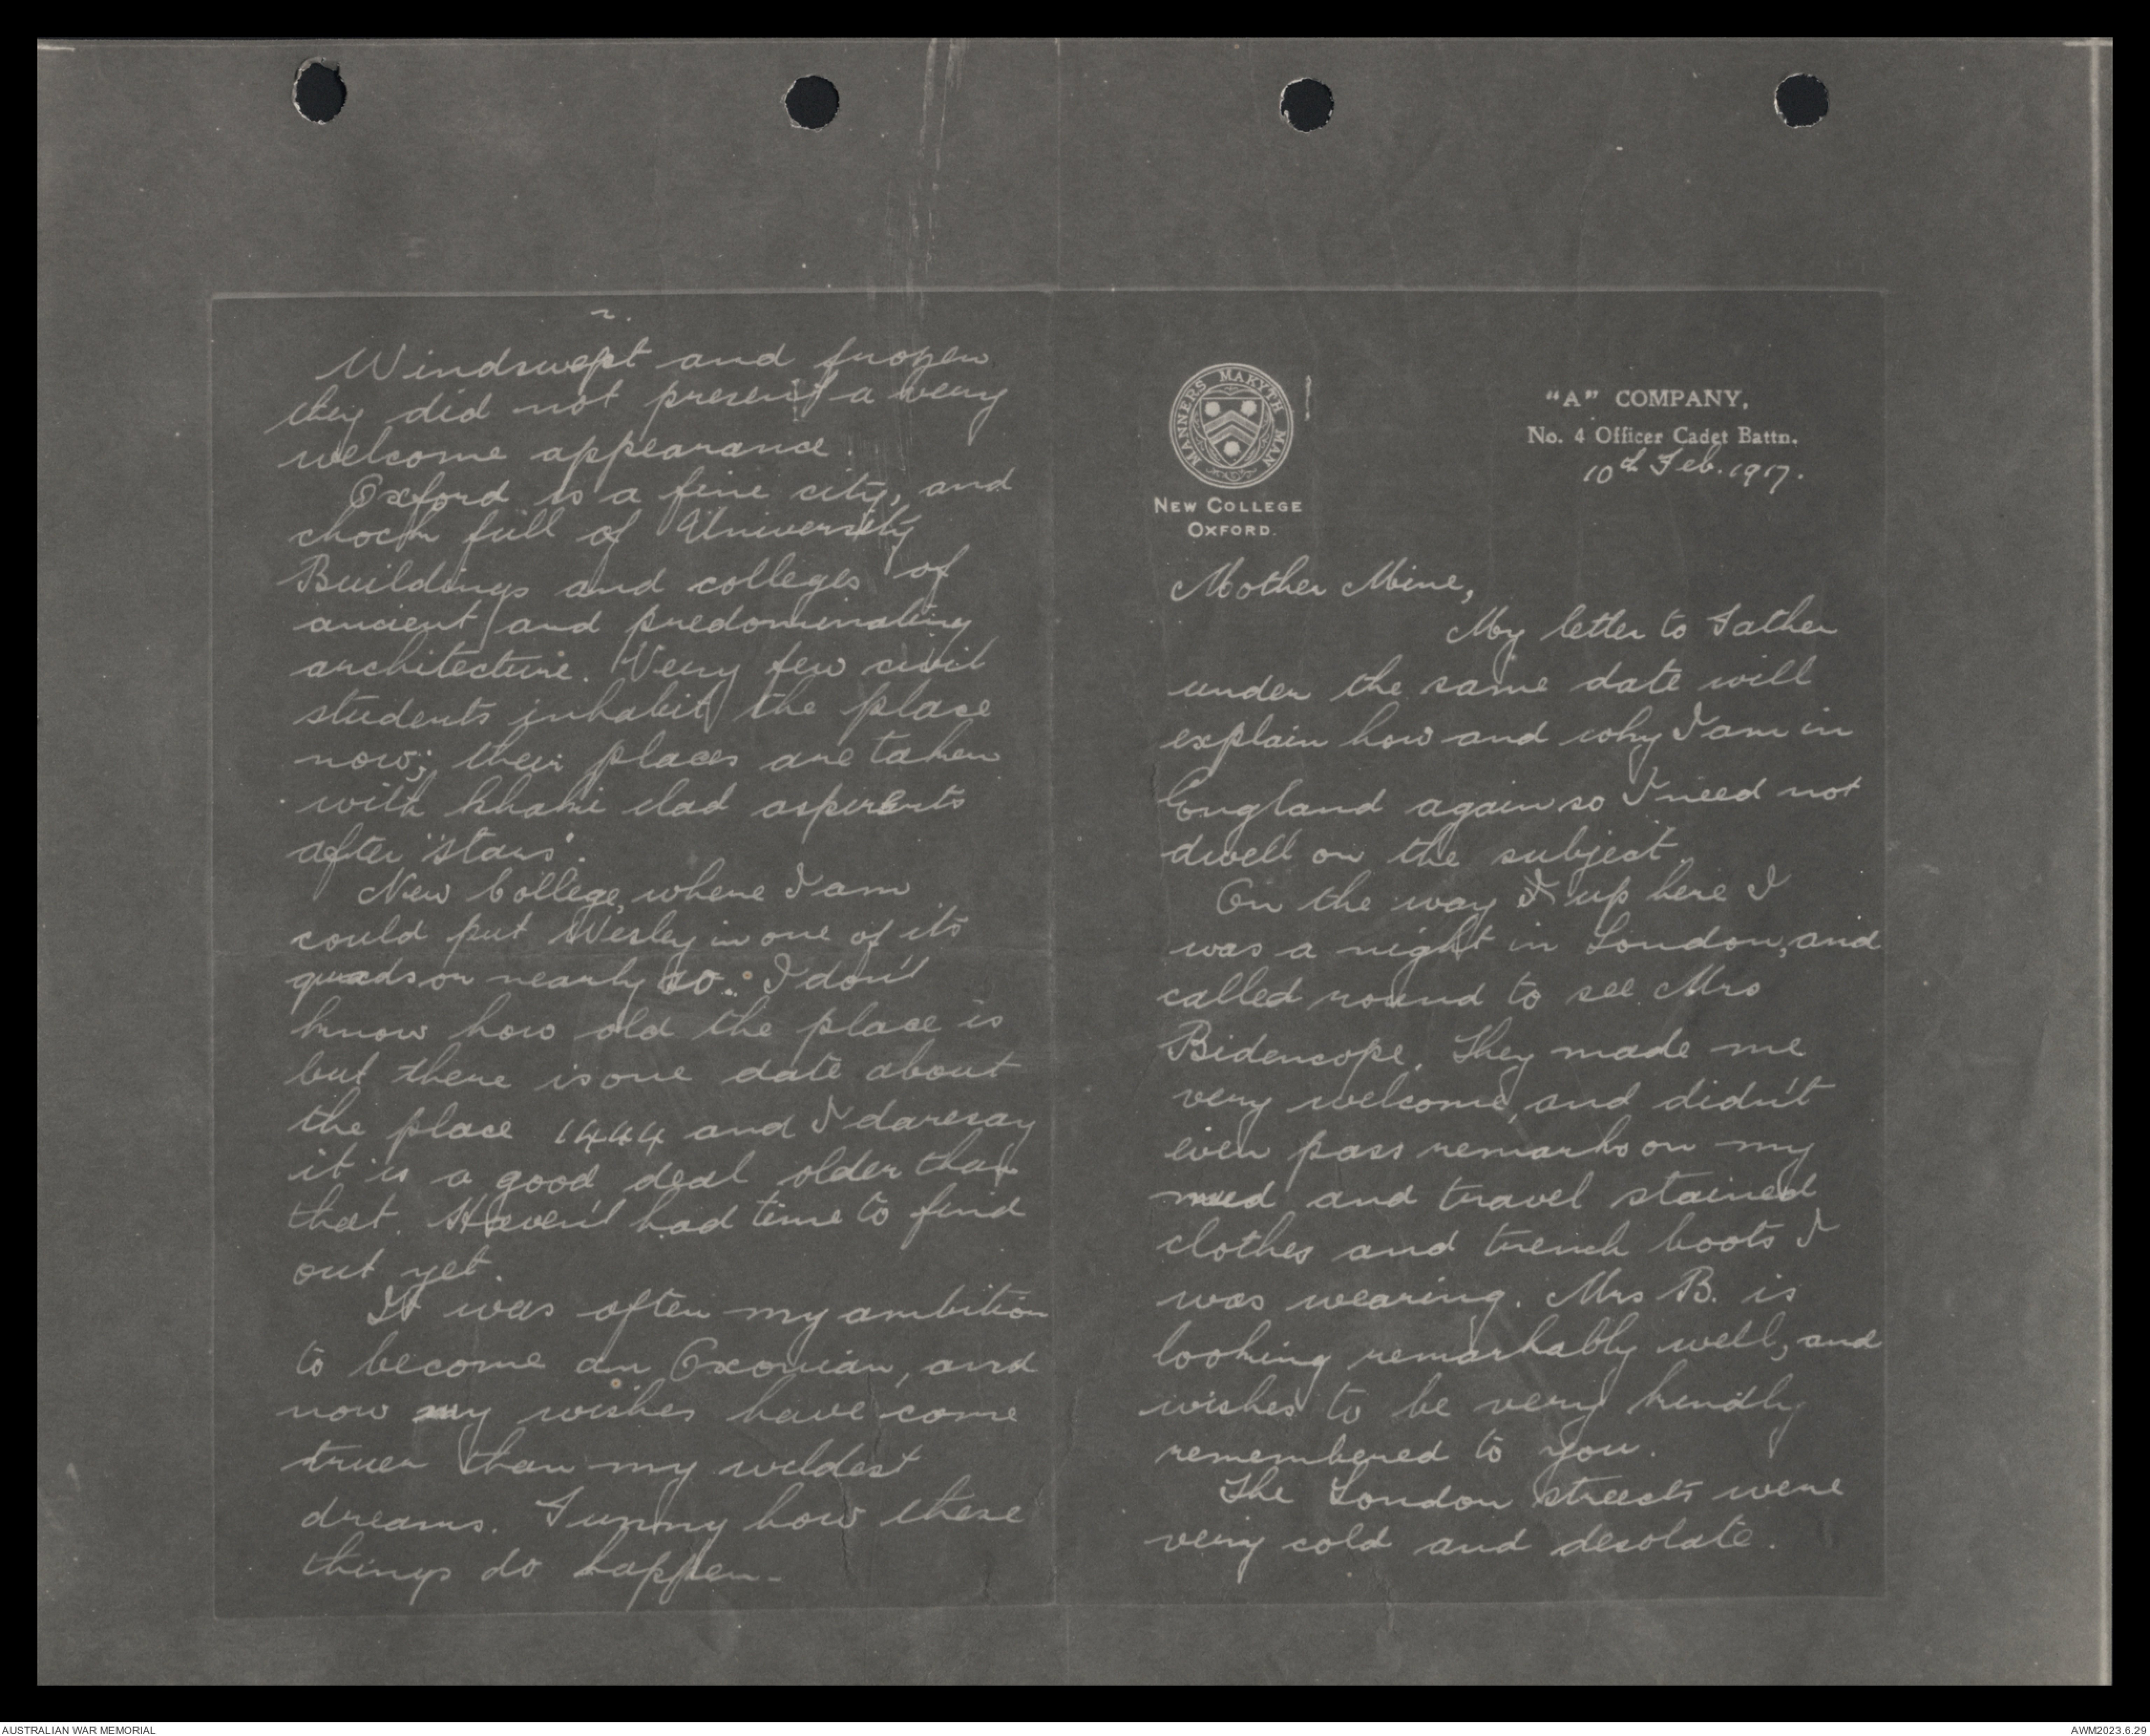 MANNERS MAKYTH MAN
NEW COLLEGE
OXFORD.
"A" COMPANY,
No. 4 Officer Cadet Battn.
10th Feb. 1917.
Mother Mine,
My letter to Father
under the same date will
explain how and why I am in
England again so I need not
dwell on the subject.
On the way up here I
was a night in London, and
called round to see Mrs
Bidencope. They made me
very welcome, and didn't
even pass remarks on my
mud and travel stained
clothes and trench boots I
was wearing. Mrs B. is
looking remarkably well, and
wishes to be very kindly
remembered to you.
The London streets were
very cold and desolate.
2.
Windswept and frozen
they did not present a very
welcome appearance.
Oxford is a fine city, and
chock full of University
Buildings and colleges of
ancient and predominating
architecture. Very few civil
students inhabit the place
now; their places are taken
with khaki clad aspirants
after "stars".
New College, where I am
could put Wesley in one of its
quads or nearly so. I don't
know how old the place is
but there is one date about
the place 1444 and I daresay
it is a good deal older than
that. Haven't had time to find
out yet.
It was often my ambition
to become an Oxonian, and
now my wishes have come
truer than my wildest
dreams. Funny how these
things do happen-
AUSTRALIAN WAR MEMORIAL
AWM2023.6.29